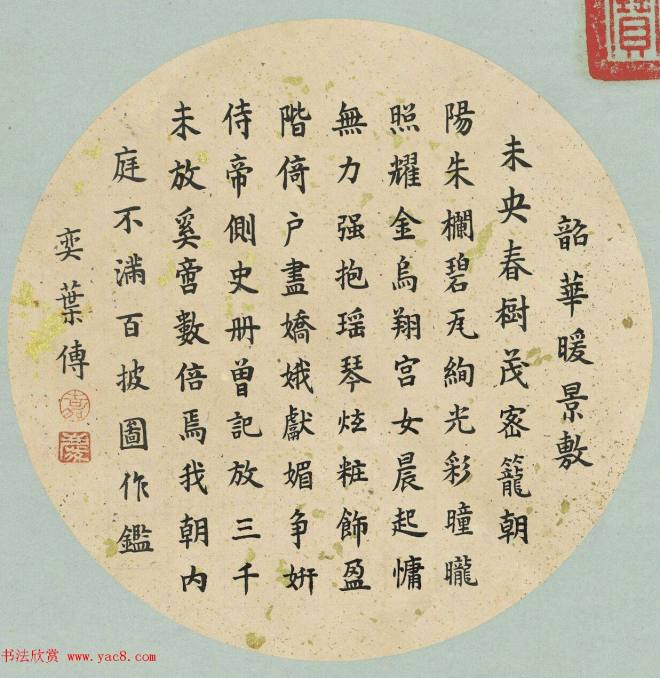 韶華暖景敷
未央春樹茂密籠朝
陽朱欄碧瓦絢光彩曈曨
照耀金烏翔宮女晨起慵
無力强抱瑶琴炫粧飾盈
階倚户盡嬌娥獻媚争妍
侍帝側史册曽記放三千
未放奚啻數倍焉我朝内
庭不滿百披圖作鑑
奕葉傳
寶
書法欣赏 www.yac8.com